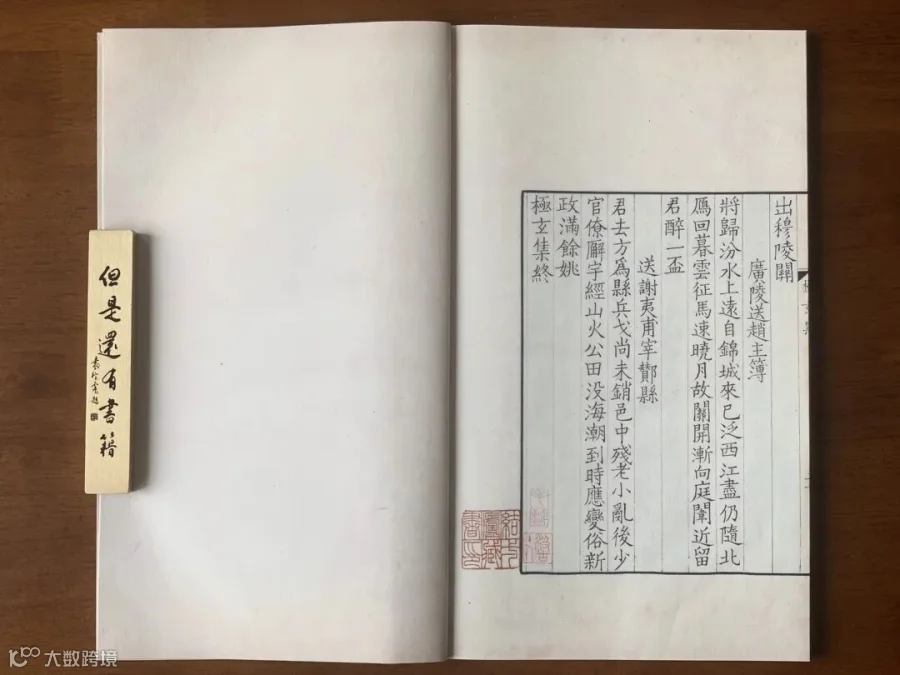 出穆陵關
廣陵送趙主簿
將歸汾水上遠自錦城來已泛西江盡仍隨北
鴈回暮雲征馬速曉月故關開漸向庭闈近留
君醉一盃
送謝夷甫宰鄮縣
君去方爲縣兵戈尚未銷邑中殘老小亂後少
官僚廨宇經山火公田没海潮到時應變俗新
政滿餘姚
極玄集終
但是還有書籍
大数跨境